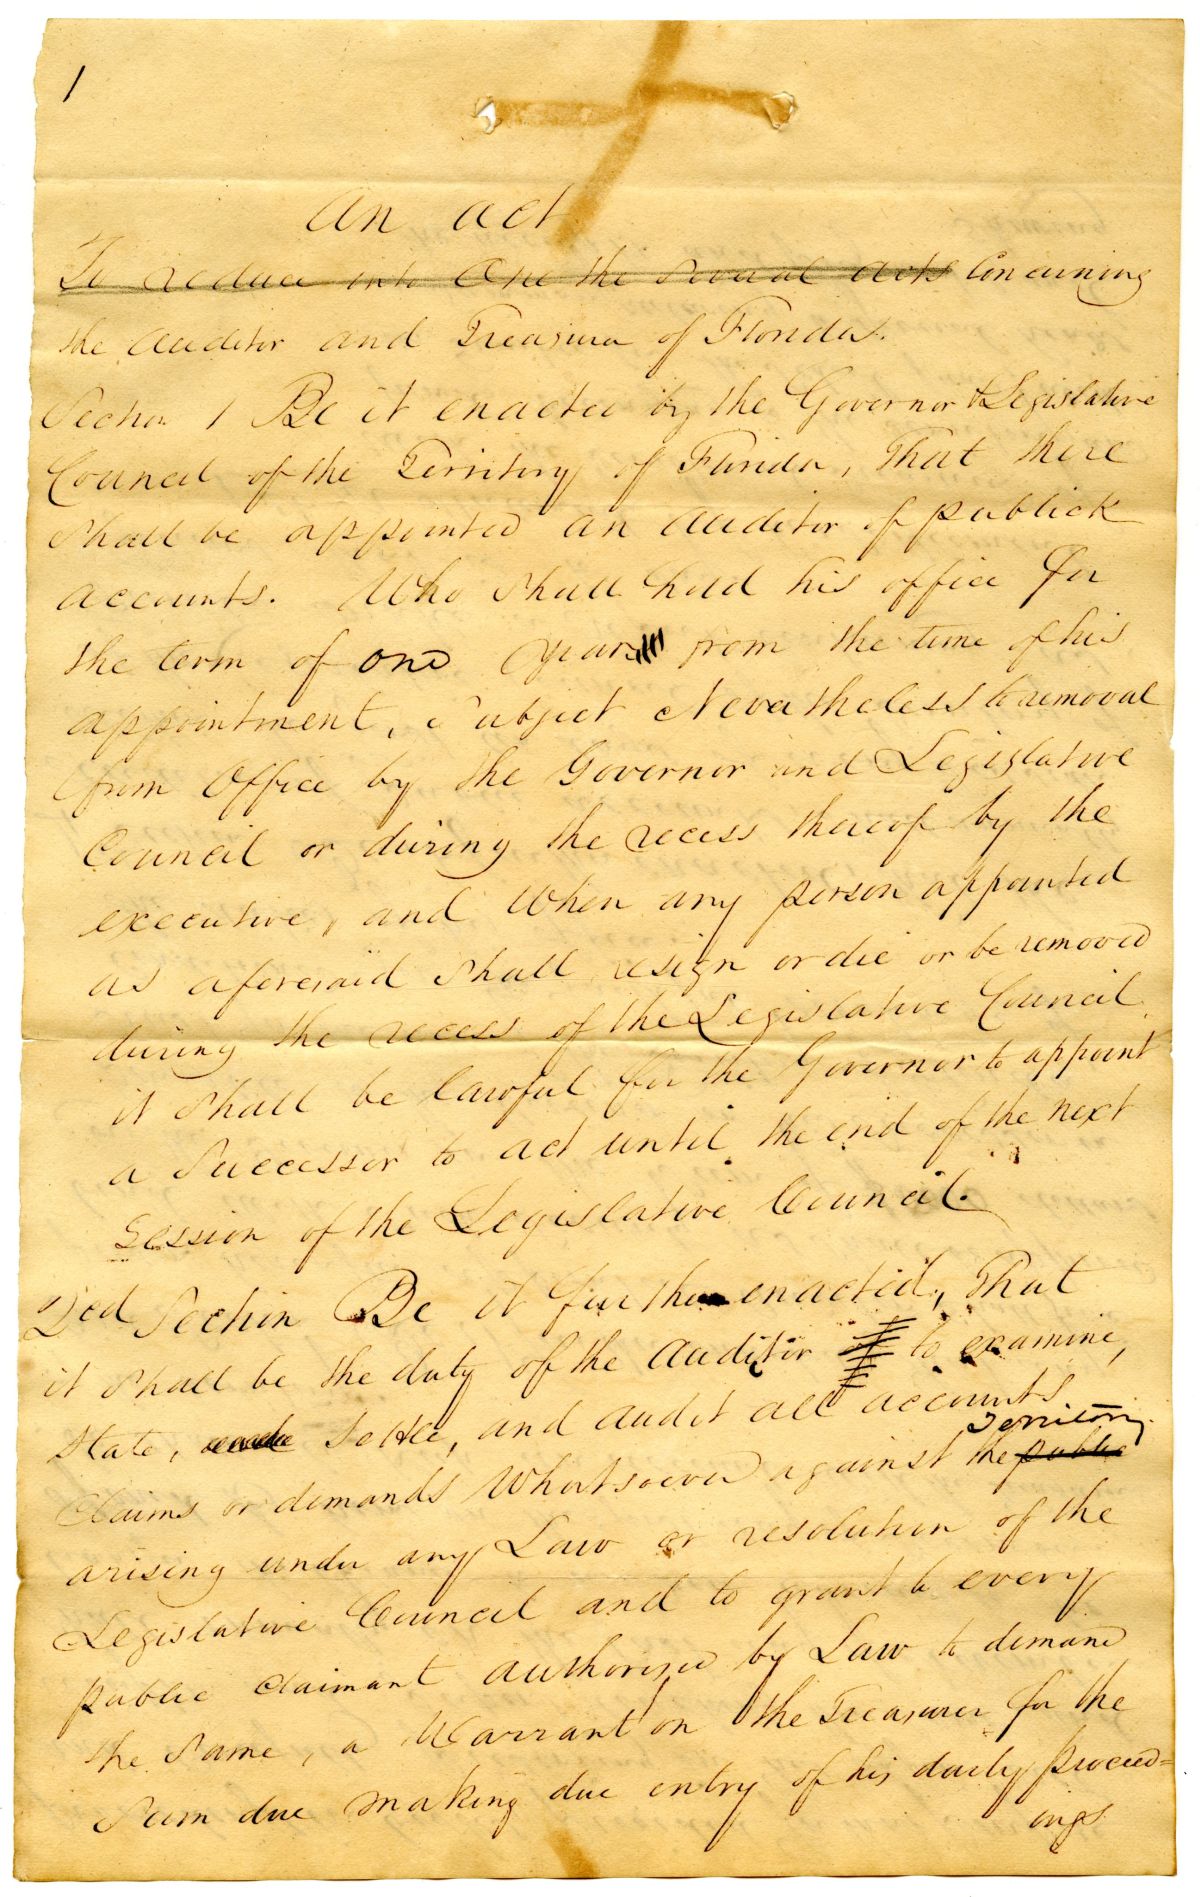 1
An act
To reduce into One the Several acts Concerning
the Auditor and Treasurer of Florida.
Section 1 Be it enacted by the Governor & Legislative
Council of the Territory of Florida, That there
Shall be appointed an Auditor of publick
accounts. Who Shall hold his office for
the term of one year from the time of his
appointment, Subject Nevertheless to removal
from Office by the Governor and Legislative
Council or during the recess thereof by the
executive, and When any person appointed
as aforesaid Shall resign or die or be removed
during the recess of the Legislative Council
it Shall be lawful for the Governor to appoint
a Successor to act until the end of the next
Session of the Legislative Council.
2cd Section Be it further enacted, That
it Shall be the duty of the Auditor to examine,
State, Settle, and audit all accounts
Territory
Claims or demands Whatsoever against the public
arising under any Law or resolution of the
Legislative Council and to grant to every
public claimant authorised by Law to demand
the Same, a Warrant on the Treasurer for the
Sum due making due entry of his daily proceed=
ings